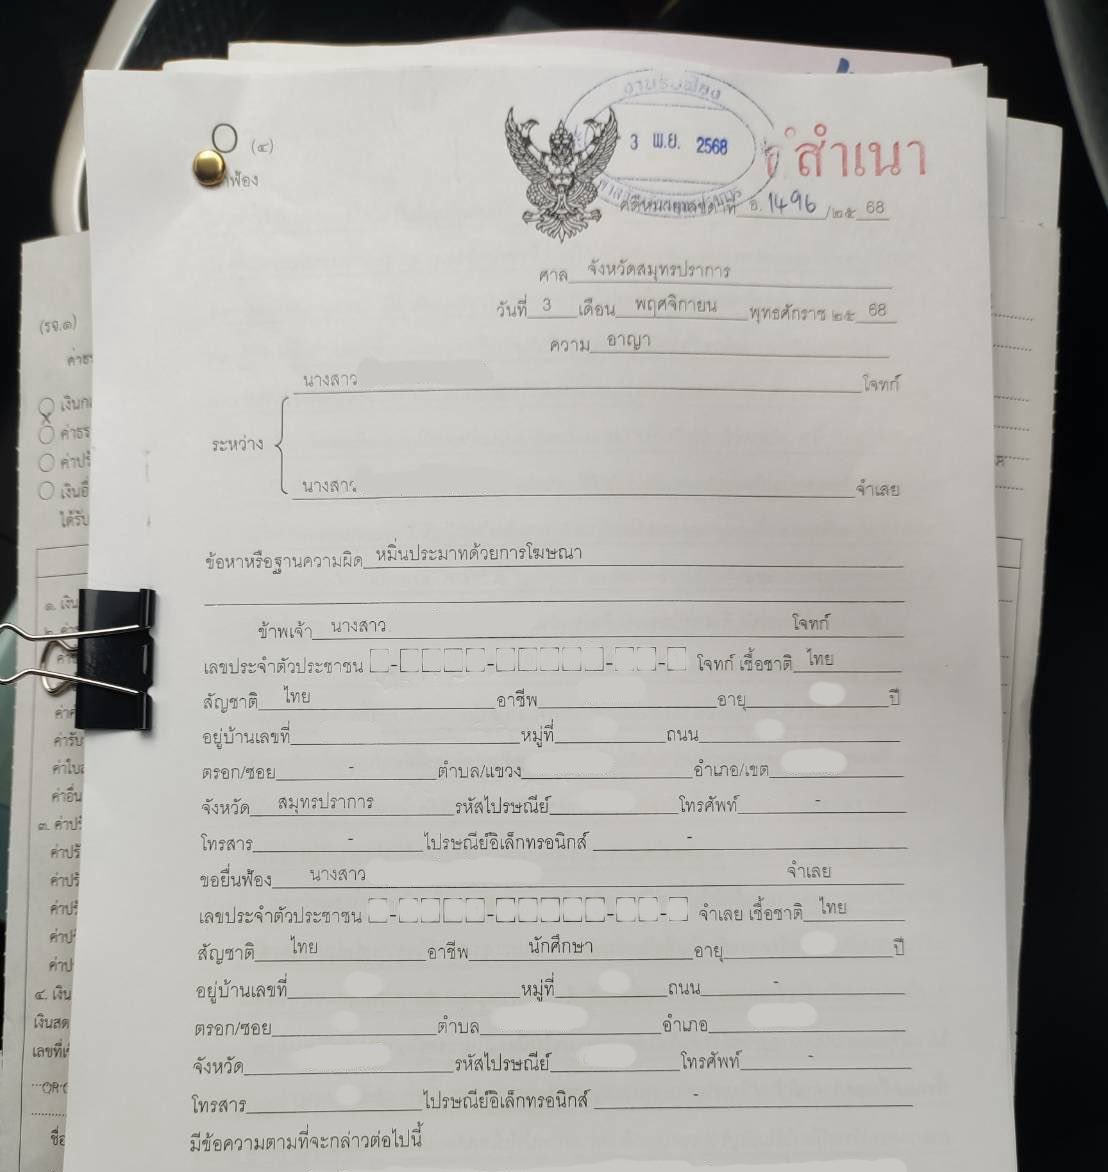 ○ (๔)
ฟ้อง
งานรับฟ้อง
3 พ.ย. 2568
สำเนา
คดีหมายเลขดำที่ อ.1496 /๒๕ 68
ศาล จังหวัดสมุทรปราการ
วันที่ 3 เดือน พฤศจิกายน พุทธศักราช ๒๕ 68
ความ อาญา
นางสาว โจทก์
ระหว่าง
นางสาว จำเลย
ข้อหาหรือฐานความผิด หมิ่นประมาทด้วยการโฆษณา
ข้าพเจ้า นางสาว โจทก์
เลขประจำตัวประชาชน โจทก์ เชื้อชาติ ไทย
สัญชาติ ไทย อาชีพ อายุ ปี
อยู่บ้านเลขที่ หมู่ที่ ถนน
ตรอก/ซอย - ตำบล/แขวง อำเภอ/เขต
จังหวัด สมุทรปราการ รหัสไปรษณีย์ โทรศัพท์ -
โทรสาร - ไปรษณีย์อิเล็กทรอนิกส์ -
ขอยื่นฟ้อง นางสาว จำเลย
เลขประจำตัวประชาชน จำเลย เชื้อชาติ ไทย
สัญชาติ ไทย อาชีพ นักศึกษา อายุ ปี
อยู่บ้านเลขที่ หมู่ที่ ถนน -
ตรอก/ซอย ตำบล อำเภอ
จังหวัด รหัสไปรษณีย์ โทรศัพท์ -
โทรสาร ไปรษณีย์อิเล็กทรอนิกส์ -
มีข้อความตามที่จะกล่าวต่อไปนี้
(รจ.๑)
๔. เงิน
เงินสด